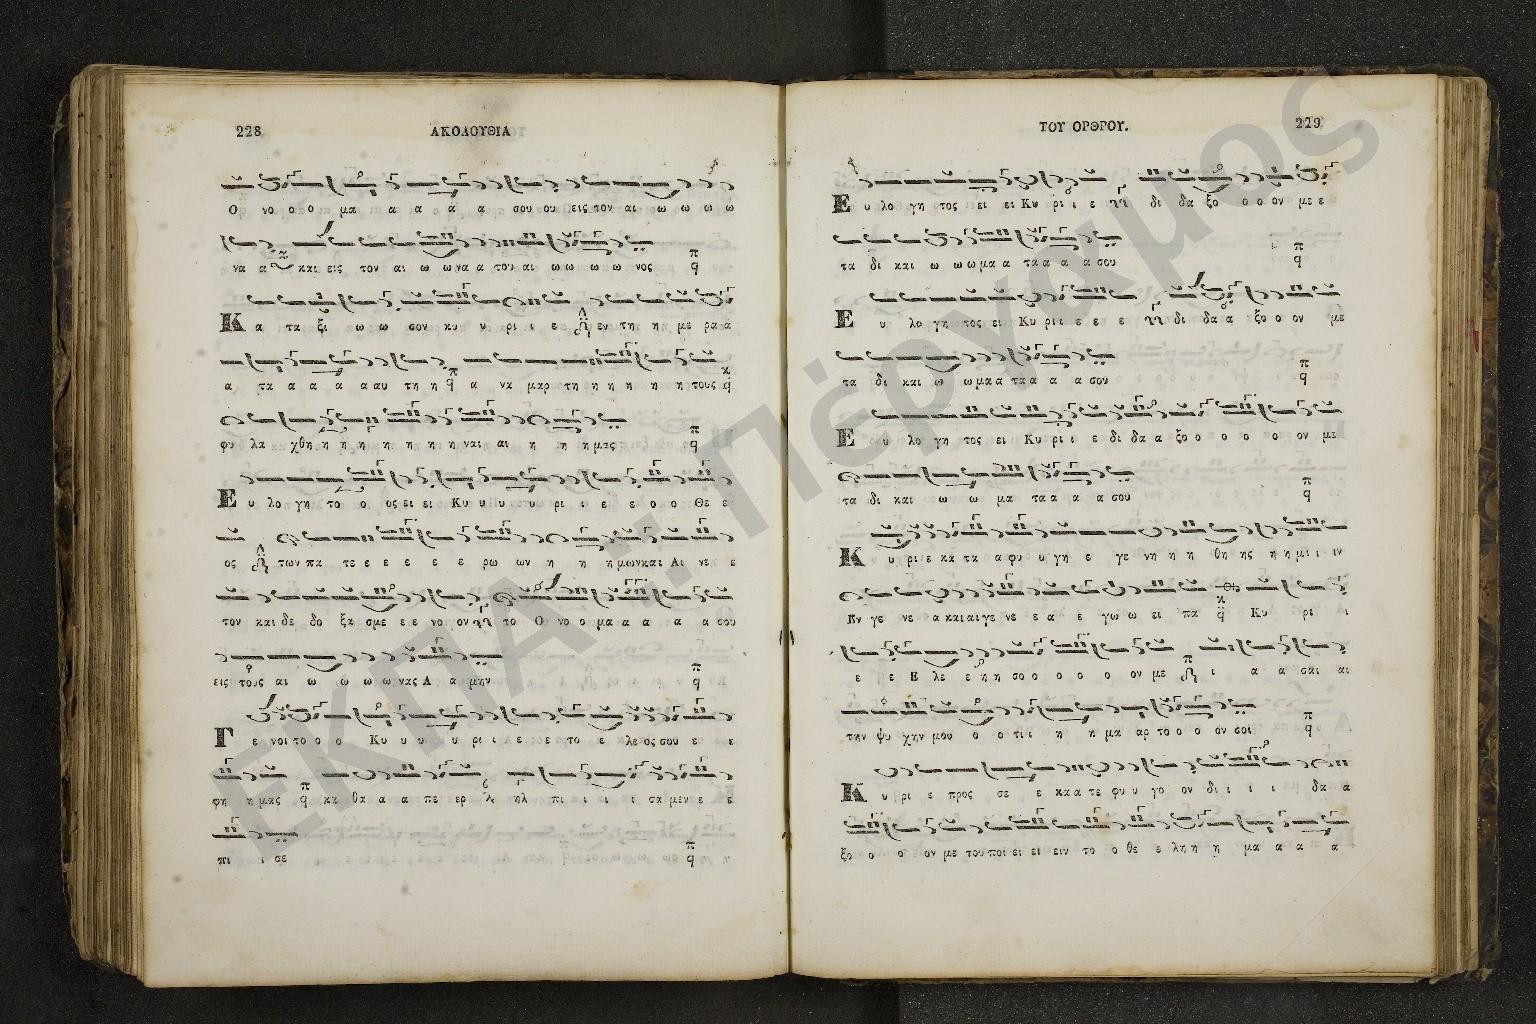 228 ΑΚΟΛΟΥΘΙΑ
Ο νο ο ο μα α α α α σου ου εις τον αι ω ω ω ω
να α και εις τον αι ω ω να α του αι ω ω ω ω νος
Κ α τα ξι ω ω σον κυ υ ρι ι ε εν τη η με ρα α
α τα α α α α αυ τη η α να μαρ τη η η η η η τους
φυ λα χθη η η η η η η η ναι αι η η η μας
Ε υ λο γη το ο ος ει ει Κυ υ υ υ υ ρι ι ε ε ε ο ο Θε ε
ος των πα τε ε ε ε ε ε ρω ων η η η μων και Αι νε ε
τον και δε δο ξα σμε ε ε νο ον το Ο νο ο μα α α α α σου
εις τους αι ω ω ω ω νας Α α μην
Γ ε νοι το ο ο Κυ υ υ υ υ ρι ι ε ε ε το ε λε ος σου ε ε
φη η μας κα θα α α πε ερ ηλ πι ι ι ι σα μεν ε ε
πι ι σε
ΤΟΥ ΟΡΘΡΟΥ. 229
Ε υ λο γη τος ει ει Κυ ρι ι ε δι δα ξο ο ο ον με ε
τα δι και ω ω ω μα α τα α α α σου
Ε υ λο γη τος ει Κυ ρι ι ε ε ε ε δι δα α ξο ο ον με
τα δι και ω ω μα α τα α α α σου
Ε υ λο γη τος ει Κυ ρι ι ε δι δα α ξο ο ο ο ο ον με
τα δι και ω ω μα τα α α α σου
Κ υ ρι ε κα τα α φυ υ γη ε γε νη η η θη ης η η μι ι ιν
Εν γε νε α και αι γε νε ε α ε γω ω ει πα Κυ ρι ι
ε ε Ε λε ε η η σο ο ο ο ο ον με ι α α σαι αι
την ψυ χην μου ο ο τι ι η η μα αρ το ο ο ον σοι
Κ υ ρι ε προς σε ε κα α τε φυ υ γο ον δι ι ι ι δα α
ξο ο ο ον με του ποι ει ει ειν το ο θε ε λη η η μα α α α
ΕΚΠΑ :: Πέργαμος